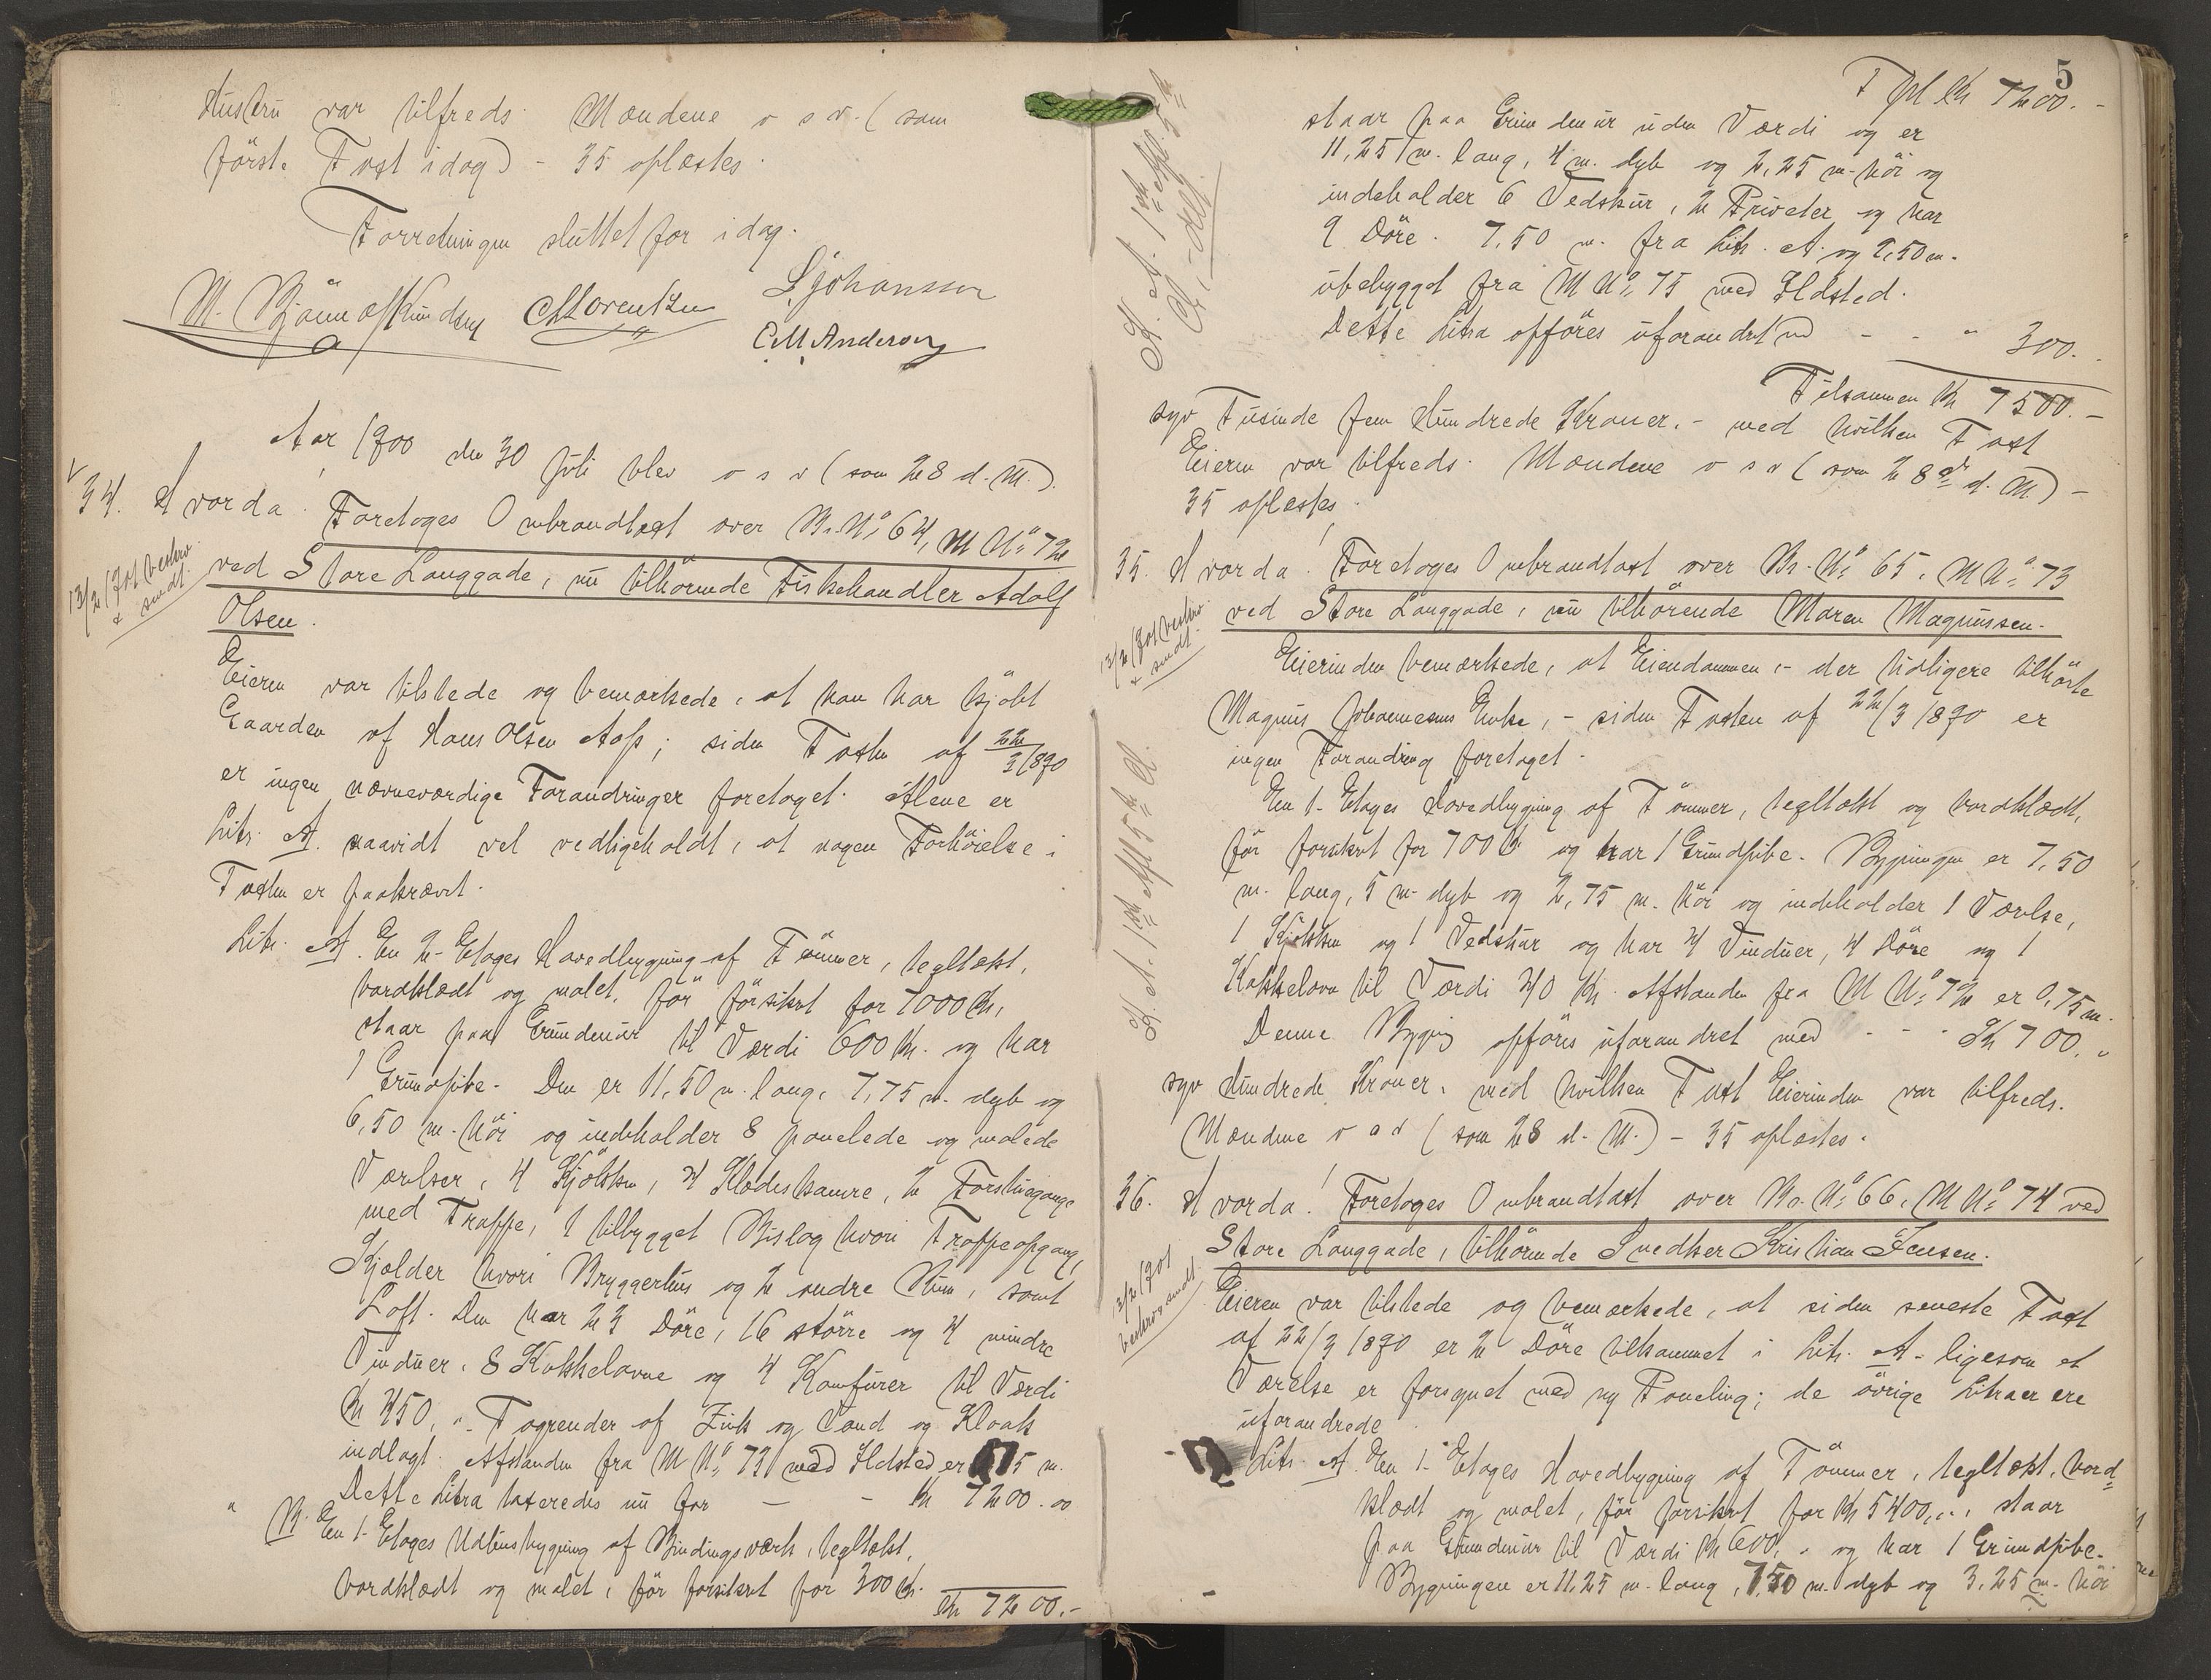 Hustru var tilfreds. Mændene o s v. (som
först. Taxt idag) - 35 oplæstes.
Forretningen sluttet for idag.
M. Bjönness Knudsen Lorentzen S. Johanssen
C. M. Anderson
Aar 1900 den 30 juli blev o s v (som 28 d. M.).
34. Hvorda! Foretoges Ombrandtaxt over Br. No 64, M No 72
13/2 1901 beskrev. & sendt.
ved Store Langgade, nu tilhörende Fiskehandler Adolf
Olsen.
Eieren var tilstede og bemærkede, at han har kjöbt
Gaarden af Hans Olsen Aas; siden Taxten af 22/3 1890
er ingen nævneværdige Forandringer foretaget. Alene er
Litr. A. saavidt vel vedligeholdt, at nogen Forhöielse i
Taxten er paakrævet.
Litr. A. En 2-Etages Hovedbygning af Tömmer, tegltækt,
bordklædt og malet, för forsikret for 7000 Kr,
staar paa Grundmur til Værdi 600 Kr. og har
1 Grundpibe. Den er 11,50 m. lang, 7,75 m. dyb og
6,50 m. höi og indeholder 8 panelede og malede
Værelser, 4 Kjökken, 4 Klædeskamre, 2 Forstuegange
med Trappe, 1 tilbygget Bislag hvori Trappeopgang,
Kjælder hvori Bryggerhus og 2 andre Rum, samt
Loft. Den har 23 Döre, 16 större og 4 mindre
Vinduer, 8 Kakkelovne og 4 Komfurer til Værdi
Kr 450,". Tagrender af Zink og Vand og Kloak
indlagt. Afstanden fra M No 73 med Ildsted er 0,75 m.
Dette Litra taxeredes nu for — - Kr 7200.00
" B. En 1-Etages Udhusbygning af Bindingsværk, tegltækt,
bordklædt og malet, för forsikret for 300 Kr.
Kr 7200.-
5
Tpl Kr 7200.-
staar paa Grundmur uden Værdi og er
11,25 m. lang, 4 m. dyb og 2,25 m. höi og
indeholder 6 Vedskur, 2 Priveter og har
9 Döre. 7,50 m. fra Litr. A. og 2,50 m.
ubebygget fra M No 75 med Ildsted.
Dette Litra opföres uforandret med - - " 300.-
Tilsammen Kr 7500.-
syv Tusinde fem Hundrede Kroner, - med hvilken Taxt
Eieren var tilfreds. Mændene o s v (som 28de d. M) -
35 oplæstes.
35. Hvorda! Foretoges Ombrandtaxt over Br. No 65, M No 73
13/2 1901 beskrev. & sendt.
ved Store Langgade, nu tilhörende Maren Magnussen.
Eierinden bemærkede, at Eiendommen, - der tidligere tilhörte
Magnus Johannesens Enke, - siden Taxten af 22/3 1890 er
ingen Forandring foretaget.
En 1-Etages Hovedbygning af Tömmer, tegltækt og bordklædt,
för forsikret for 700 Kr og har 1 Grundpibe. Bygningen er 7,50
m. lang, 5 m. dyb og 2,75 m. höi og indeholder 1 Værelse,
1 Kjökken og 1 Vedskur og har 4 Vinduer, 4 Döre og 1
Kakkelovn til Værdi 40 Kr. Afstanden fra M No 72 er 0,75 m.
Denne Bygning opföres uforandret med - - - Kr 700,"
syv Hundrede Kroner, med hvilken Taxt Eierinden var tilfreds.
Mændene o s v (som 28 d. M.) - 35 oplæstes.
36. Hvorda! Foretoges Ombrandtaxt over Br. No 66, M No 74 ved
13/2 1901 beskrev. & sendt.
Store Langgade, tilhörende Snedker Kristian Jensen.
Eieren var tilstede og bemærkede, at siden seneste Taxt
af 22/3 1890 er 2 Döre tilkommet i Litr. A. ligesom et
Værelse er forsynet med ny Paneling; de övrige Litraer ere
uforandrede.
Litr. A. En 1-Etages Hovedbygning af Tömmer, tegltækt, bord-
klædt og malet, för forsikret for Kr 5400,", staar
paa Grundmur til Værdi Kr 600," og har 1 Grundpibe.
Bygningen er 11,25 m. lang, 7,50 m. dyb og 3,25 m. höi